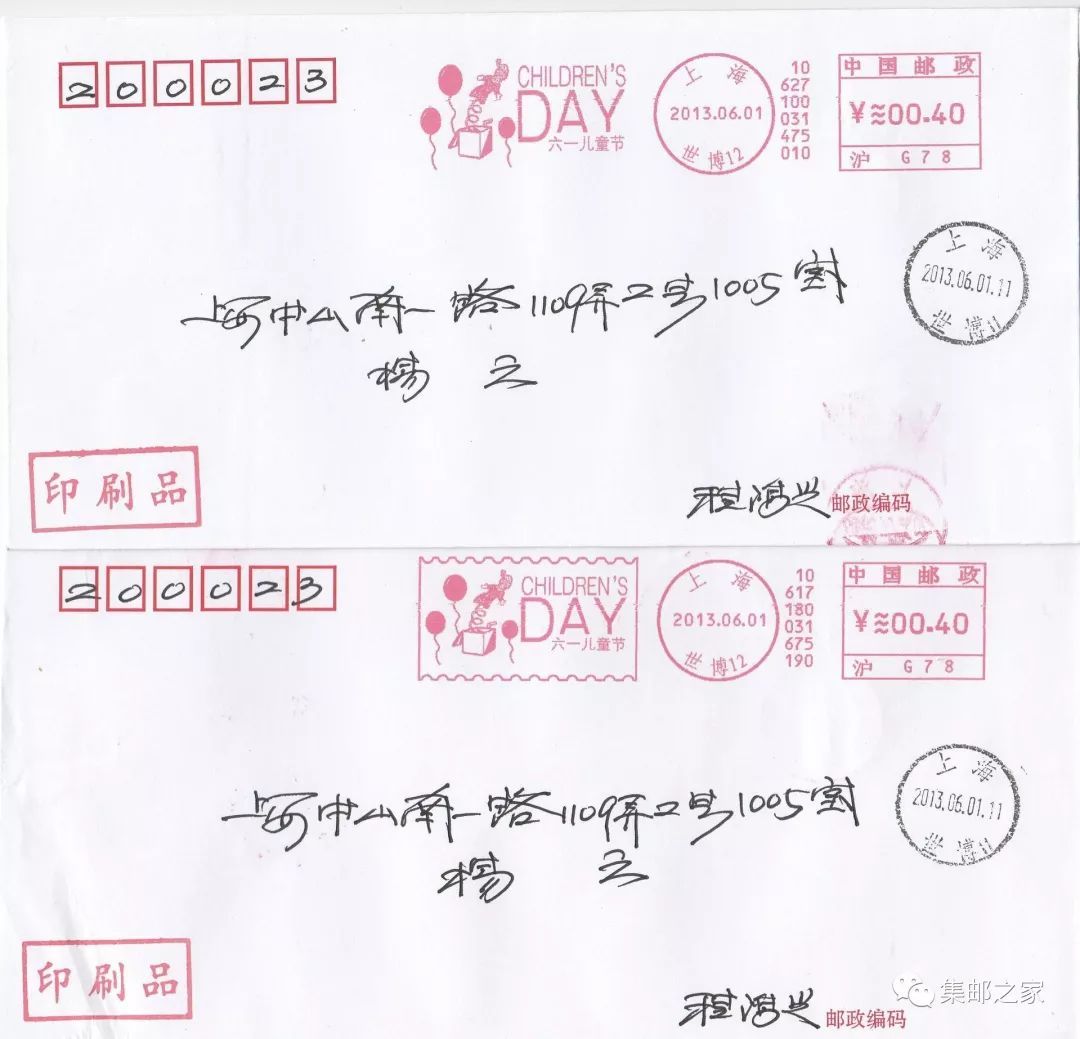 200023
CHILDREN'S
DAY
六一儿童节
上海
2013.06.01
世博12
10
627
100
031
475
010
中国邮政
¥≈00.40
沪 G78
上海
2013.06.01.11
世博11
上海中山南一路1109弄2号1005室
杨 云
印刷品
程海兴
邮政编码
200023
CHILDREN'S
DAY
六一儿童节
上海
2013.06.01
世博12
10
617
180
031
675
190
中国邮政
¥≈00.40
沪 G78
上海
2013.06.01.11
世博11
上海中山南一路1109弄2号1005室
杨 云
印刷品
程海兴
邮政编码
集邮之家